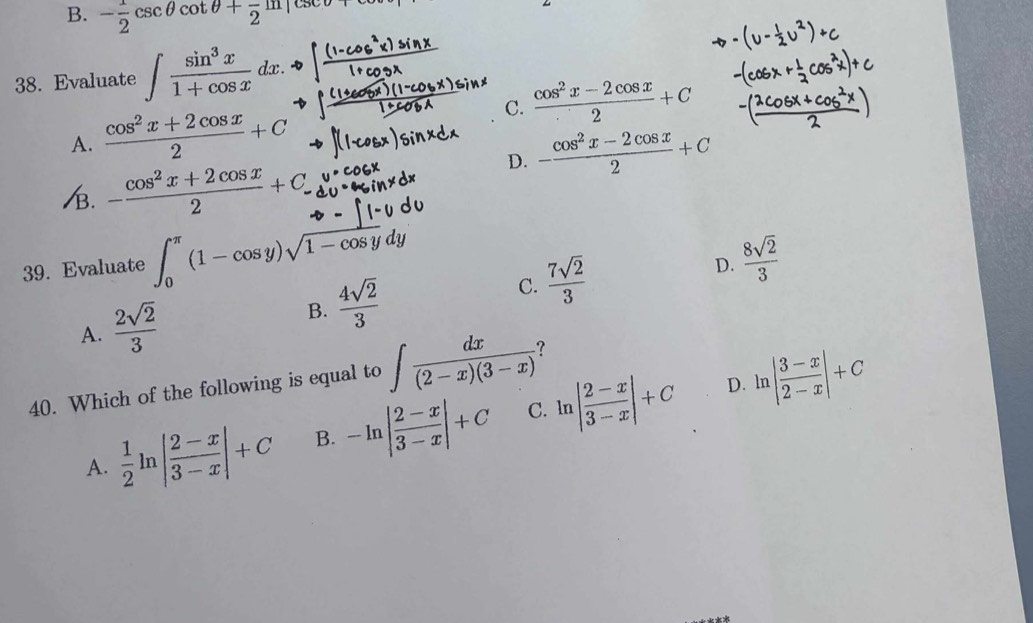 B. −1/2 csc θ cot θ + 1/2 ln|csc θ
38. Evaluate ∫ sin³ x / (1 + cos x) dx. → ∫ (1-cos²x) sinx / 1+cosx
→ ∫ (1+cosx)(1-cosx) sinx / 1+cosx
→ ∫(1-cosx) sinx dx
u = cosx
-du = sinxdx
→ - ∫ 1-u du
→ -(u - 1/2 u²) + c
-(cosx + 1/2 cos²x) + c
-(2cosx + cos²x / 2)
A. (cos² x + 2 cos x)/2 + C
B. −(cos² x + 2 cos x)/2 + C
C. (cos² x − 2 cos x)/2 + C
D. −(cos² x − 2 cos x)/2 + C
39. Evaluate ∫₀^π (1 − cos y)√(1 − cos y) dy
A. 2√2/3
B. 4√2/3
C. 7√2/3
D. 8√2/3
40. Which of the following is equal to ∫ dx / ((2 − x)(3 − x))?
A. 1/2 ln |(2 − x)/(3 − x)| + C
B. − ln |(2 − x)/(3 − x)| + C
C. ln |(2 − x)/(3 − x)| + C
D. ln |(3 − x)/(2 − x)| + C